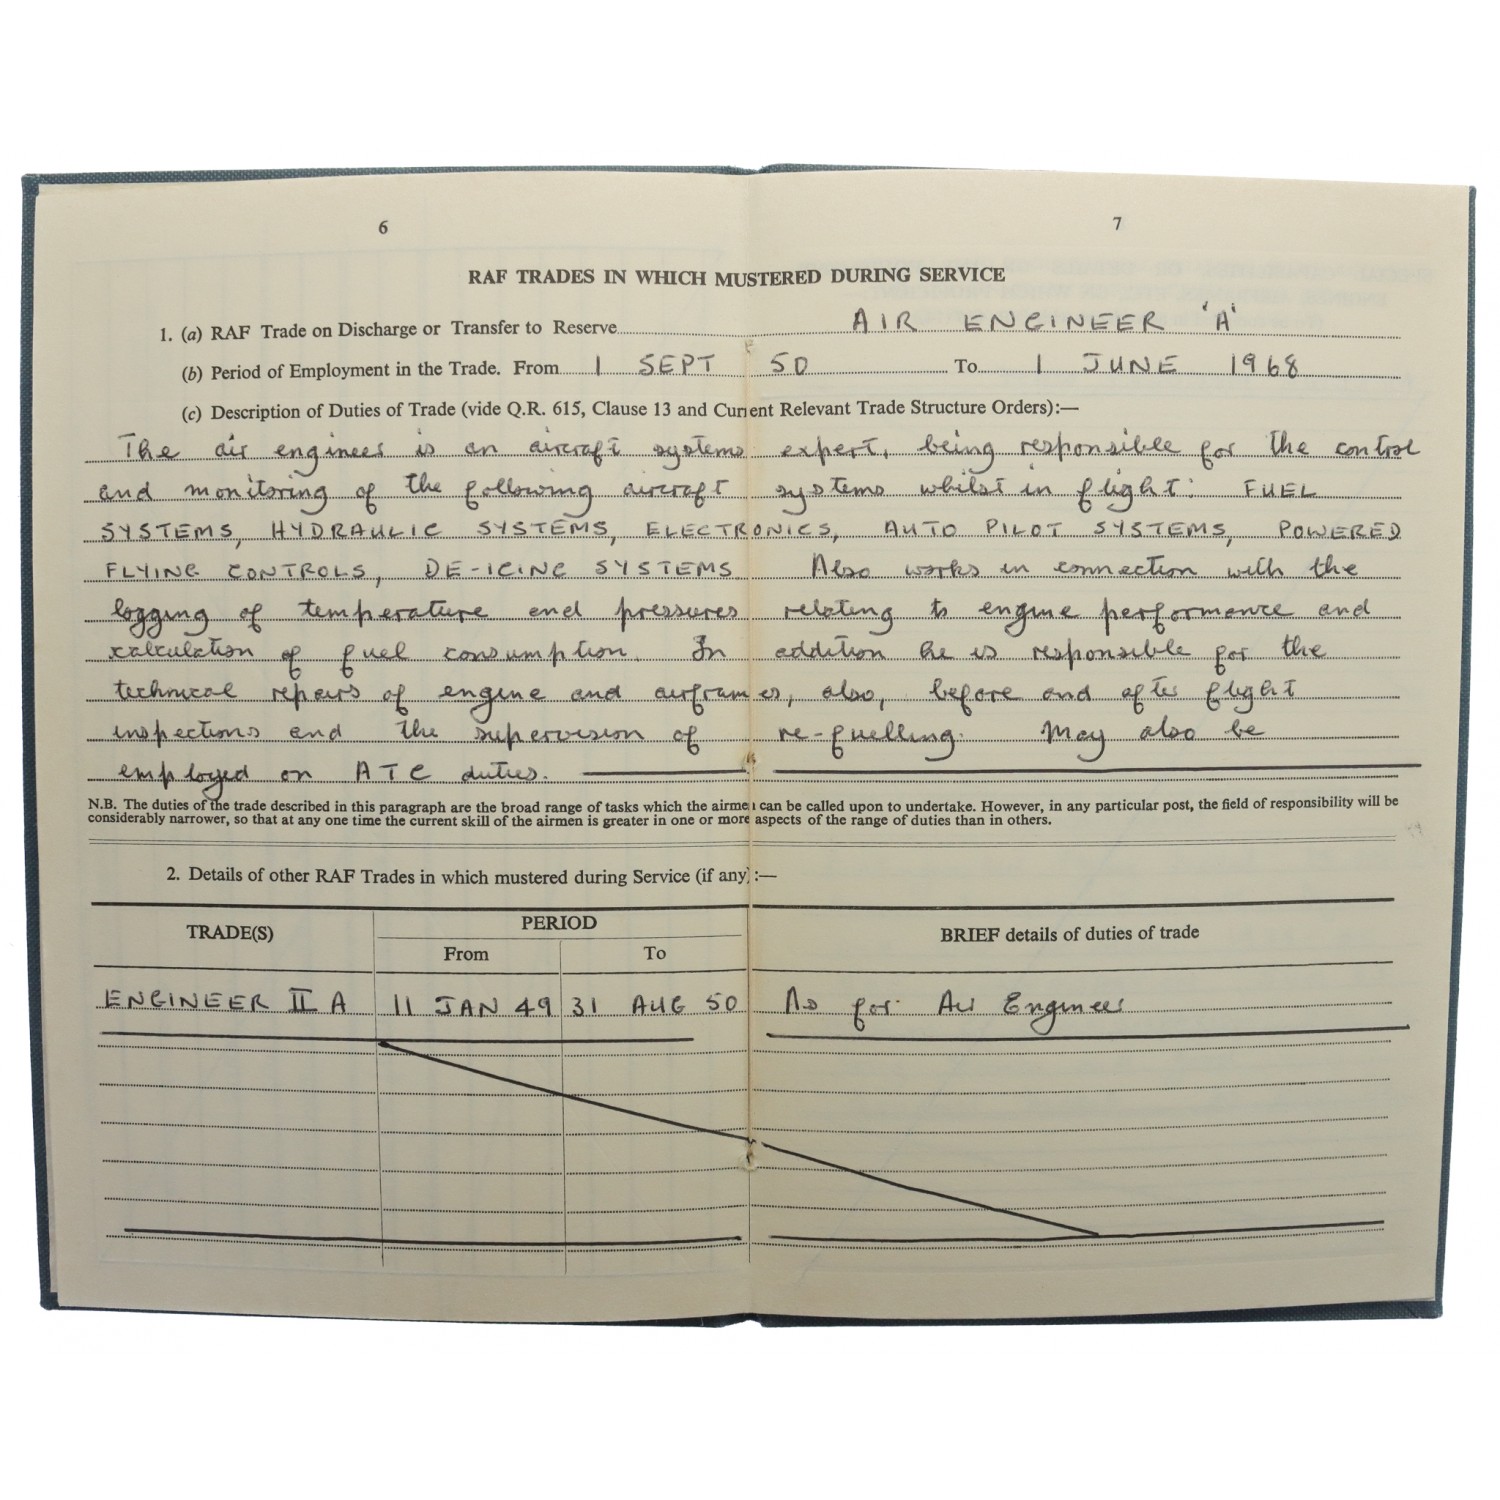 6
7
RAF TRADES IN WHICH MUSTERED DURING SERVICE
1. (a) RAF Trade on Discharge or Transfer to Reserve AIR ENGINEER 'A'
(b) Period of Employment in the Trade. From 1 SEPT 50 To 1 JUNE 1968
(c) Description of Duties of Trade (vide Q.R. 615, Clause 13 and Current Relevant Trade Structure Orders):—
The air engineer is an aircraft systems expert, being responsible for the control
and monitoring of the following aircraft systems whilst in flight: FUEL
SYSTEMS, HYDRAULIC SYSTEMS, ELECTRONICS, AUTO PILOT SYSTEMS, POWERED
FLYING CONTROLS, DE-ICING SYSTEMS Also works in connection with the
logging of temperature and pressures relating to engine performance and
calculation of fuel consumption. In addition he is responsible for the
technical repairs of engine and airframes, also, before and after flight
inspections and the supervision of re-fuelling. May also be
employed on ATC duties.
N.B. The duties of the trade described in this paragraph are the broad range of tasks which the airmen can be called upon to undertake. However, in any particular post, the field of responsibility will be
considerably narrower, so that at any one time the current skill of the airmen is greater in one or more aspects of the range of duties than in others.
2. Details of other RAF Trades in which mustered during Service (if any) :—
TRADE(S) PERIOD BRIEF details of duties of trade
From To
ENGINEER II A 11 JAN 49 31 AUG 50 As for Air Engineer